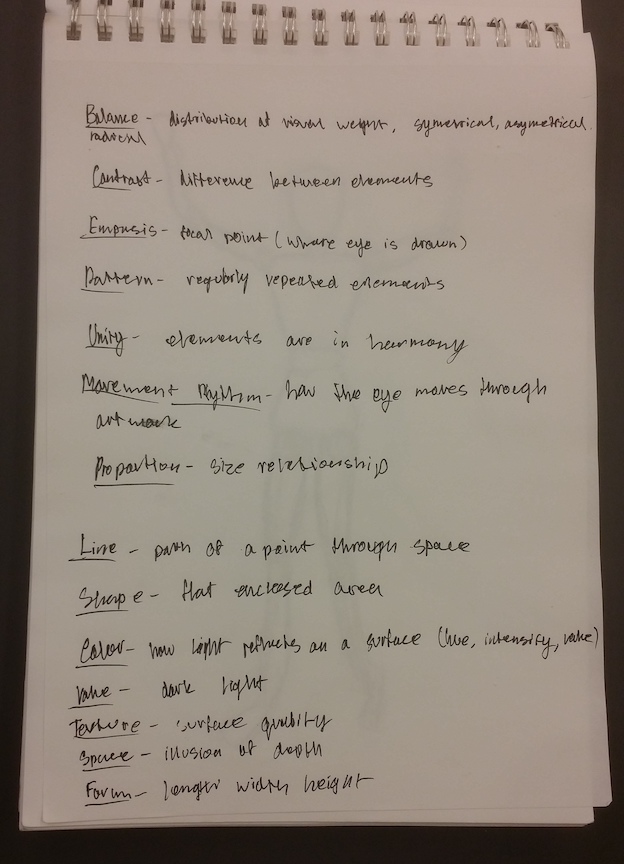 Balance - distribution of visual weight, symetrical, asymetrical.
radical
Contrast - difference between elements
Empasis - focal point (where eye is drawn)
Pattern - regularly repeated elements
Unity - elements are in harmony
Movement Rhythm - how the eye moves through
art work
Proportion - size relationship
Line - path of a point through space
Shape - flat enclosed area
Color - how light reflects on a surface (hue, intensity, value)
Value - dark light
Texture - surface quality
Space - illusion of depth
Form - length width height